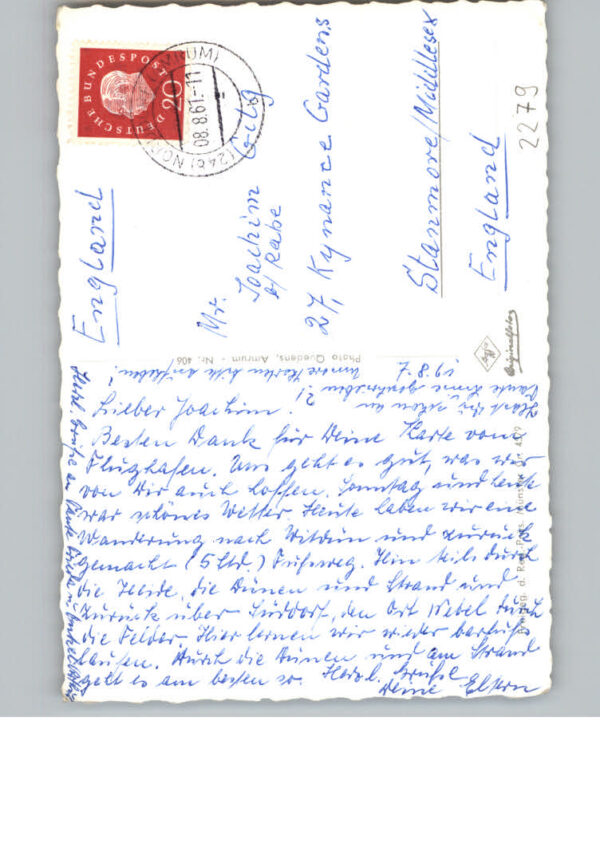 DEUTSCHE BUNDESPOST
20
(AMRUM)
08.8.61.-11
(24b) NOR
2279
England
Mr.
Joachim Gilg
b/ Rabe
27, Kynance Gardens
Stanmore/Middlesex
England
Photo Quedens, Amrum - Nr. 406
Originalfoto
7.8.61
Hast Du schon an
Tante geschrieben?!
Unsere Karten bitte aufheben!
Lieber Joachim!
Besten Dank für Deine Karte vom
Flughafen. Uns geht es gut, was wir
von Dir auch hoffen. Sonntag und heute
war schönes Wetter. Heute haben wir eine
Wanderung nach Witdün und zurück
gemacht (5 Std.) Fußweg. Hin teils durch
die Heide, die Dünen und Strand und
zurück über Süddorf, den Ort Nebel durch
die Felder. Hier lernen wir wieder barfuß
laufen. Durch die Dünen und am Strand
geht es am besten so. Herzl. Grüße
Deine Eltern
Herzl. Grüße an Tante u. Onkel